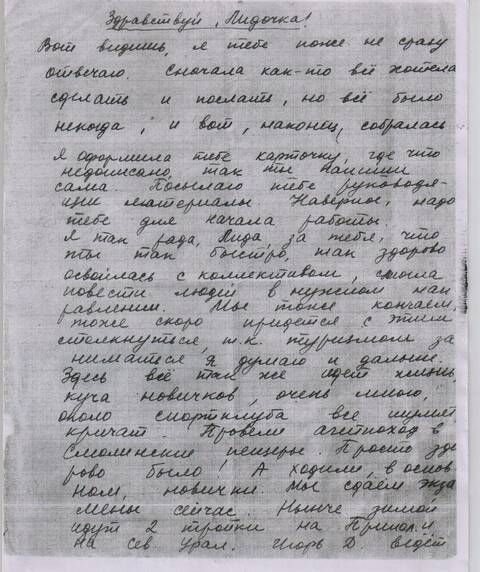 Здравствуй, Лидочка!
Вот видишь, я тебе тоже не сразу
отвечаю. Сначала как-то всё хотела
сделать и послать, но всё было
некогда, и вот, наконец, собралась
Я оформила тебе карточку, где что
недописано, так ты напиши
сама. Посылаю тебе руководя-
щий материалы. Наверное, надо
тебе для начала работы.
Я так рада, Лида, за тебя, что
ты так быстро, так здорово
освоилась с коллективом, смогла
повести людей в нужном нап
равлении. Мы тоже кончаем,
тоже скоро придется с этим
столкнуться, т.к. туризмом за
ниматься я думаю и дальше.
Здесь всё так же идет жизнь,
куча новичков, очень много,
около спортклуба все шумят
кричат. Провели агитпоход в
Смолинские пещеры. Просто здо
рово было! А ходили, в основ
ном, новички. Мы сдаём экза
мены сейчас. Нынче зимой
идут 2 тройки на Припол. и
на Сев Урал. Игорь Д. ведёт